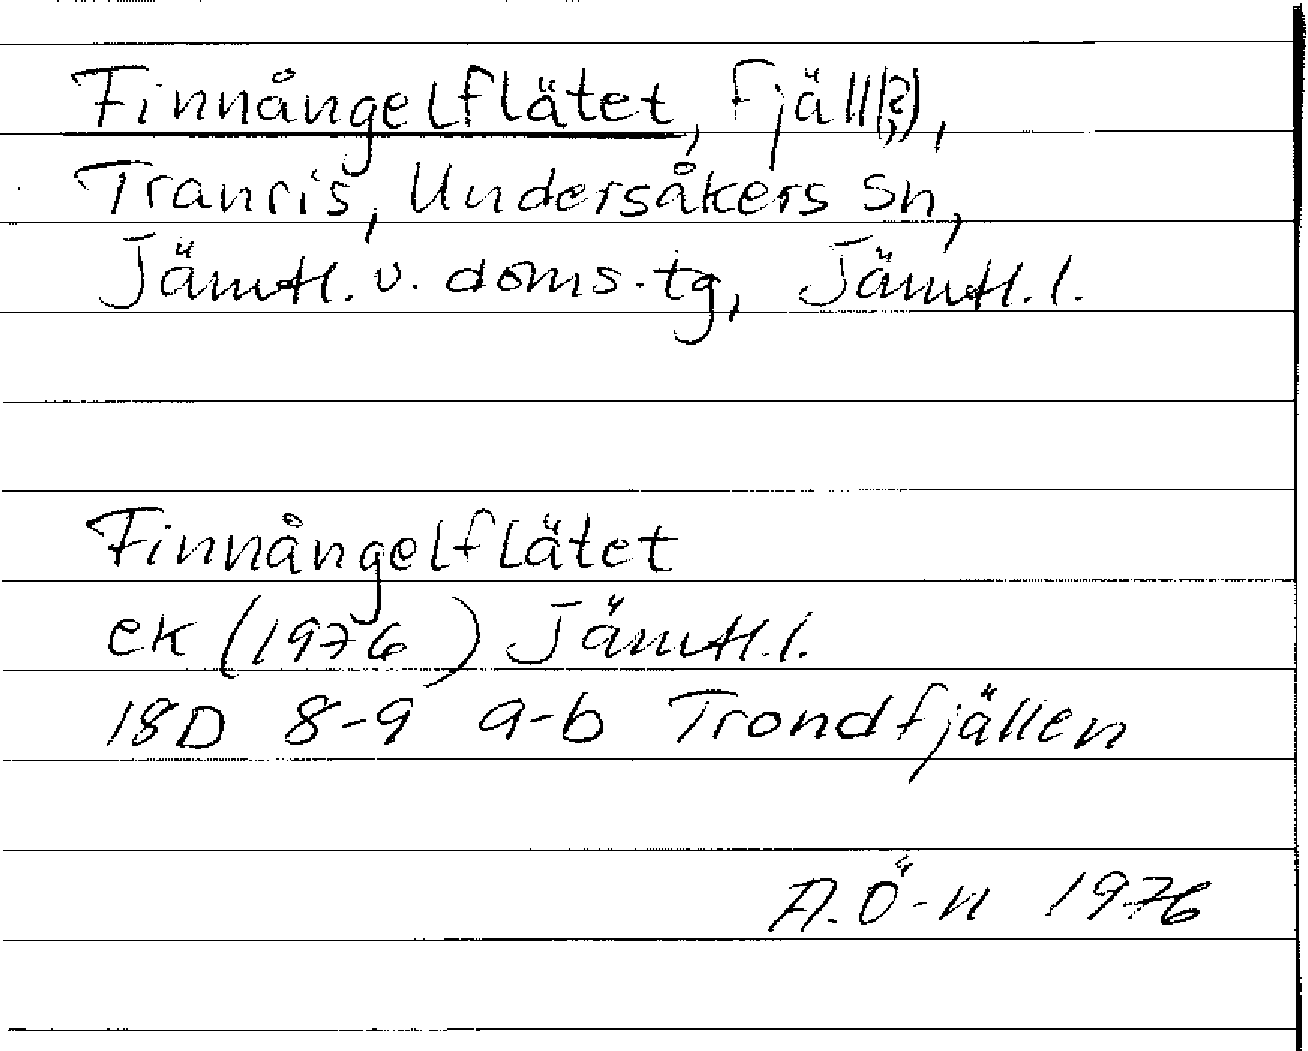 Finnångelflätet, fjäll(?),
Tranris, Undersåkers sn,
Jämtl. v. doms. tg, Jämtl. l.
Finnångelflätet
ek (1976) Jämtl. l.
18D 8-9 a-b Trondfjällen
A. Ö-n 1976